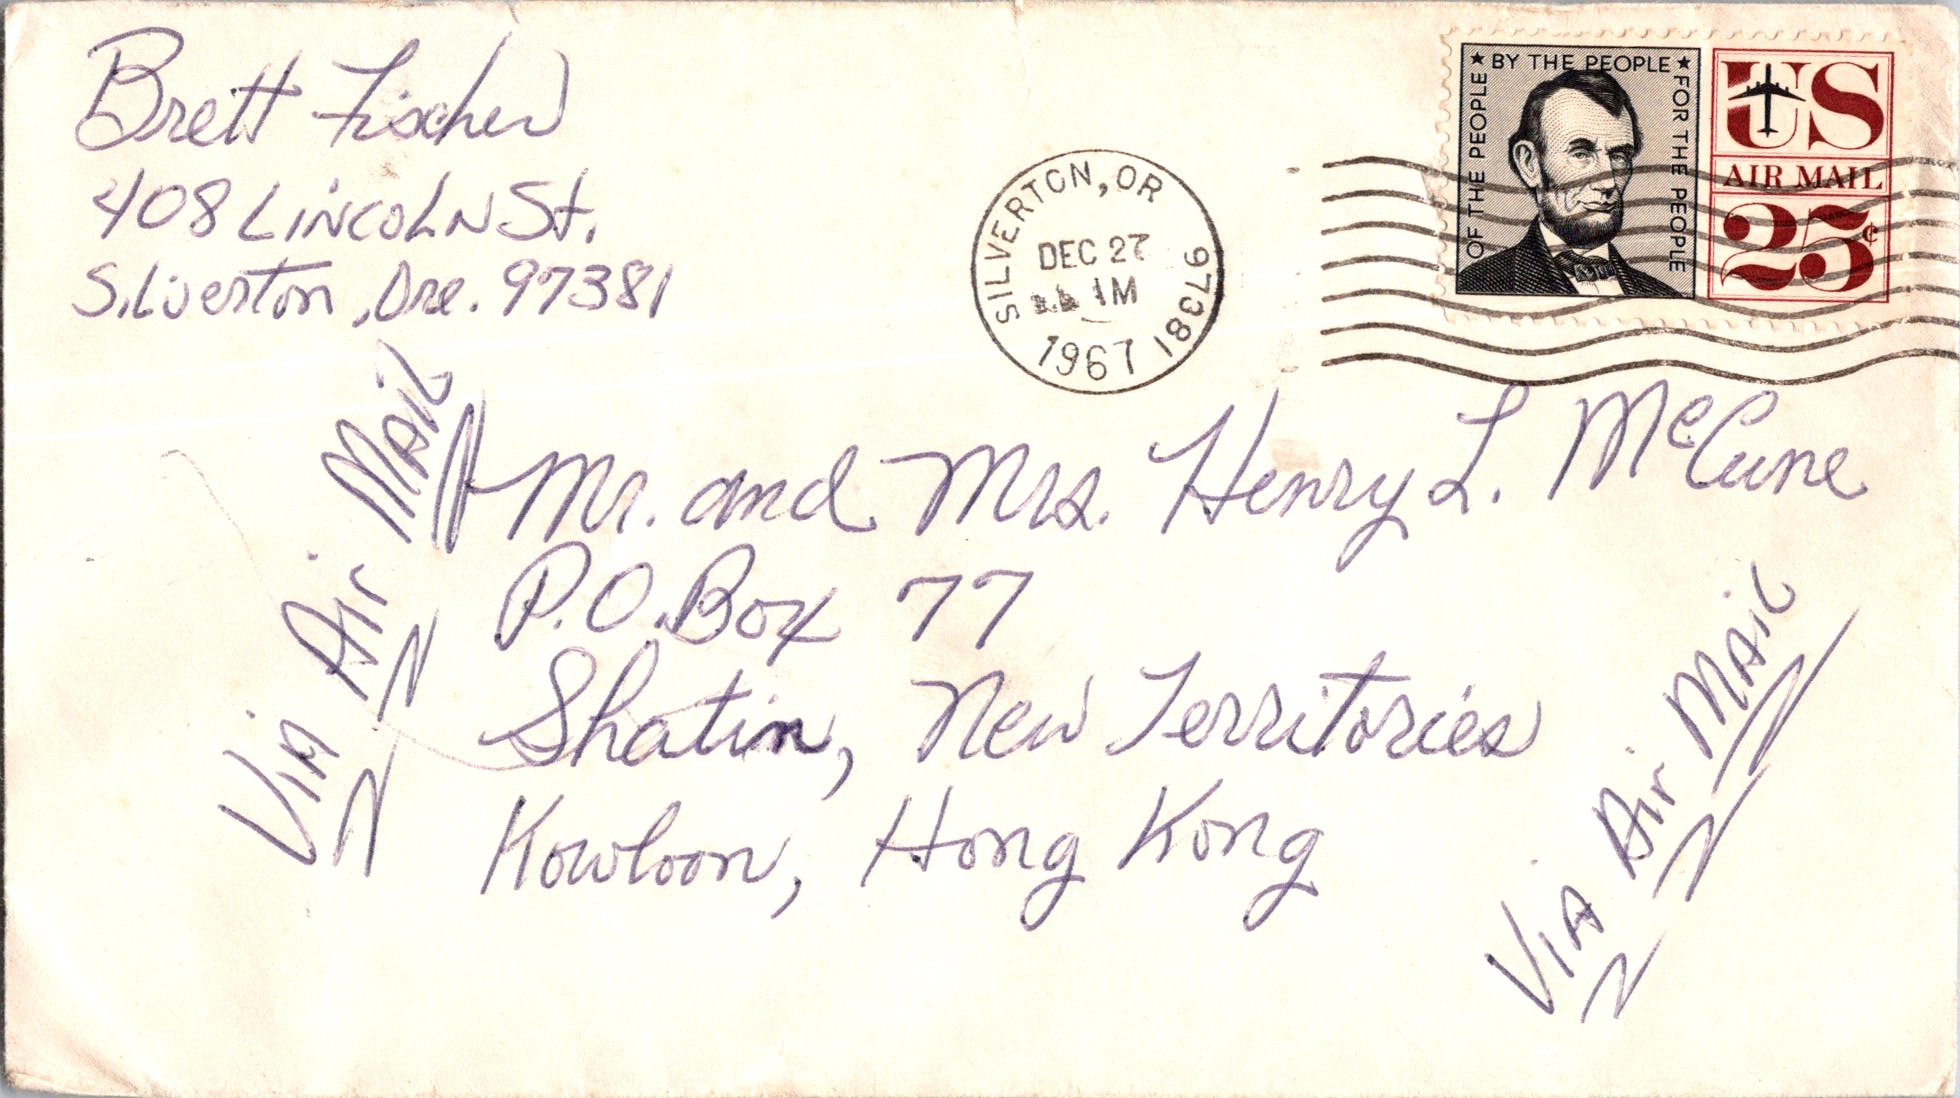 Brett Fischer
408 LINCOLN St.
Silverton, Ore. 97381
SILVERTON, OR 97381
DEC 27
1967
OF THE PEOPLE ★ BY THE PEOPLE ★ FOR THE PEOPLE
US
AIR MAIL
25¢
Via Air Mail
Mr. and Mrs. Henry L. McCune
P.O. Box 77
Shatin, New Territories
Kowloon, Hong Kong
Via Air Mail